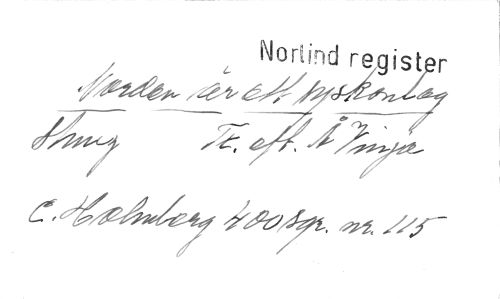 Norlind register
Norden är ett syskonlag
Skog Tr. eft. Å Vinje
C. Holmberg 400 Sgr. nr. 115